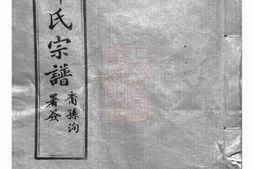 氏宗譜
裔孫洵
署簽